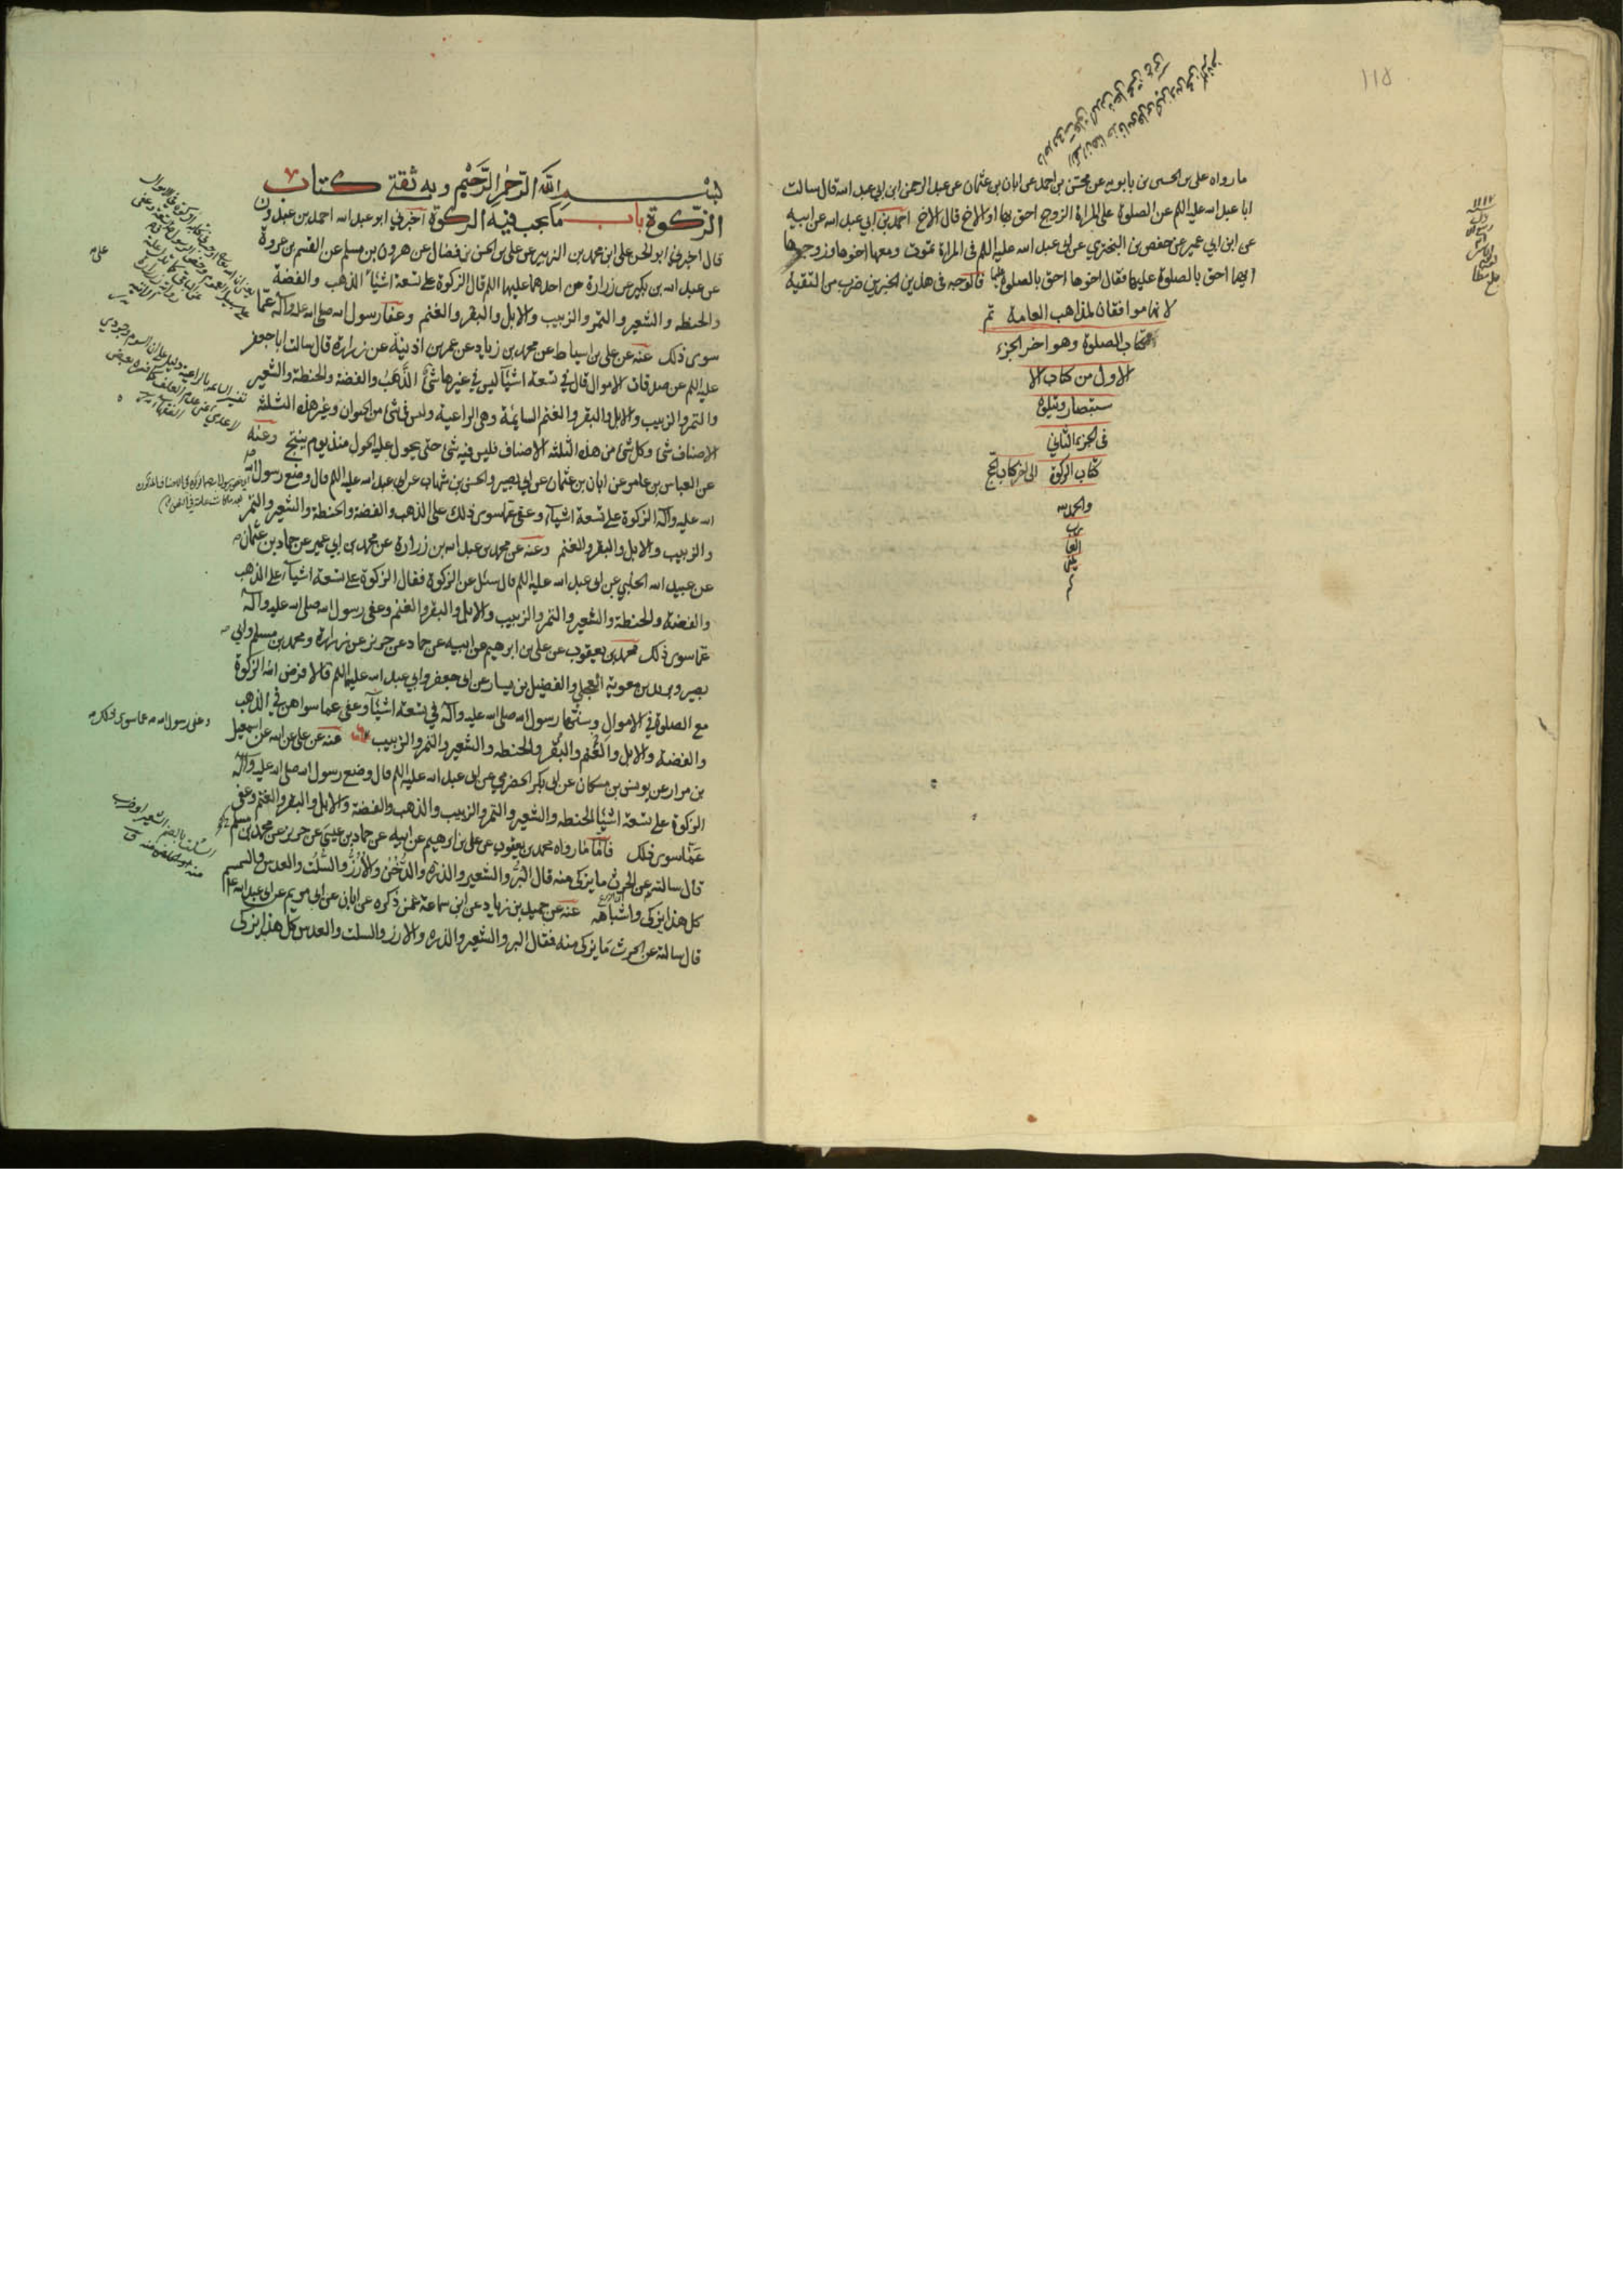 ١١٥
ما رواه على بن الحسين بن بابويه عن محسن بن احمد عن ابان بن عثمان عن عبد الرحمن ابن ابي عبد الله قال سالت
ابا عبد الله عليه السلم عن الصلوة على المراة الزوج احق بها او الاخ قال الاخ احمد بن ابي عبد الله عن ابيه
عن ابن ابي عمير عن حفص بن البختري عن ابى عبد الله عليه السلم فى المراة تموت ومعها اخوها وزوجها
ايهما احق بالصلوة عليها فقال اخوها احق بالصلوة عليها فالوجه فى هذين الخبرين ضرب من التقية
لانهما موافقان لمذاهب العامة تم
كتاب الصلوة وهو اخر الجزء
الاول من كتاب الا
ستبصار ويتلوه
فى الجزء الثاني
كتاب الزكوة الى اخر كتاب الحج
والحمد لله
رب
العا
لمين
بسم الله الرحمن الرحيم وبه ثقتي كتاب
الزكوة باب ما يجب فيه الزكوة اخبرني ابو عبد الله احمد بن عبدون
قال اخبرنا ابو الحسن على ابن محمد بن الزبير عن على بن الحسن بن فضال عن هرون بن مسلم عن القسم بن عروة
عن عبد الله بن بكير عن زرارة عن احدهما عليهما السلم قال الزكوة على تسعة اشياء الذهب والفضة
والحنطه والشعير والتمر والزبيب والابل والبقر والغنم وعفا رسول الله صلى الله عليه وآله عما
سوى ذلك عنه عن على بن اسباط عن محمد بن زياد عن عمر بن اذينة عن زرارة قال سالت ابا جعفر
عليه السلم عن صدقات الاموال قال في تسعة اشياء ليس في غيرها شئ الذهب والفضة والحنطة والشعير
والتمر والزبيب والابل والبقر والغنم السايمة وهى الراعية وليس فى شئ من الحيوان وغير هذه الثلثة
الاصناف شئ وكل شئ من هذه الثلثه الاصناف فليس فيه شئ حتى يحول عليه الحول منذ يوم ينتج وعنه
عن العباس بن عامر عن ابان بن عثمان عن ابي بصير والحسن بن شهاب عن ابى عبد الله عليه السلم قال وضع رسول الله صلى
الله عليه وآله الزكوة على تسعة اشياء وعفى عما سوى ذلك على الذهب والفضة والحنطة والشعير والتمر
والزبيب والابل والبقر والغنم وعنه عن محمد بن عبد الله بن زرارة عن محمد بن ابي عمير عن حماد بن عثمان
عن عبيد الله الحلبي عن ابى عبد الله عليه السلم قال سئل عن الزكوة فقال الزكوة على تسعة اشياء على الذهب
والفضة والحنطة والشعير والتمر والزبيب والابل والبقر والغنم وعفى رسول الله صلى الله عليه وآله
عما سوى ذلك محمد بن يعقوب عن على بن ابرهيم عن ابيه عن حماد عن حريز عن زرارة ومحمد بن مسلم وابي
بصير وبريد بن معوية العجلي والفضيل بن يسار عن ابى جعفر وابي عبد الله عليهما السلم قالا فرض الله الزكوة
مع الصلوة فى الاموال وسنتها رسول الله صلى الله عليه وآله في تسعة اشياء وعفى عما سواهن في الذهب
والفضة والابل والغنم والبقر والحنطه والشعير والتمر والزبيب عنه عن على عن ابيه عن اسمعيل
بن مرار عن يونس بن مسكان عن ابى بكر الحضرمي عن ابى عبد الله عليه السلم قال وضع رسول الله صلى الله عليه وآله
الزكوة على تسعة اشياء الحنطه والشعير والتمر والزبيب والذهب والفضة والابل والبقر والغنم وعفى
عما سوى ذلك فاما ما رواه محمد بن يعقوب عن على بن ابرهيم عن ابيه عن حماد بن عيسى عن حريز عن محمد بن مسلم
قال سالته عن الحرث ما يزكى منه قال البر والشعير والذره والدخن والارز والسلت والعدس والسمسم
كل هذا يزكى واشباهه عنه عن حميد بن زياد عن ابن سماعة عمن ذكره عن ابان عن ابى مريم عن ابى عبد الله
قال سالته عن الحرث ما يزكى منه فقال البر والشعير والذره والارز والسلت والعدس كل هذا يزكى
وعفى رسول الله ص عما سوى ذلك